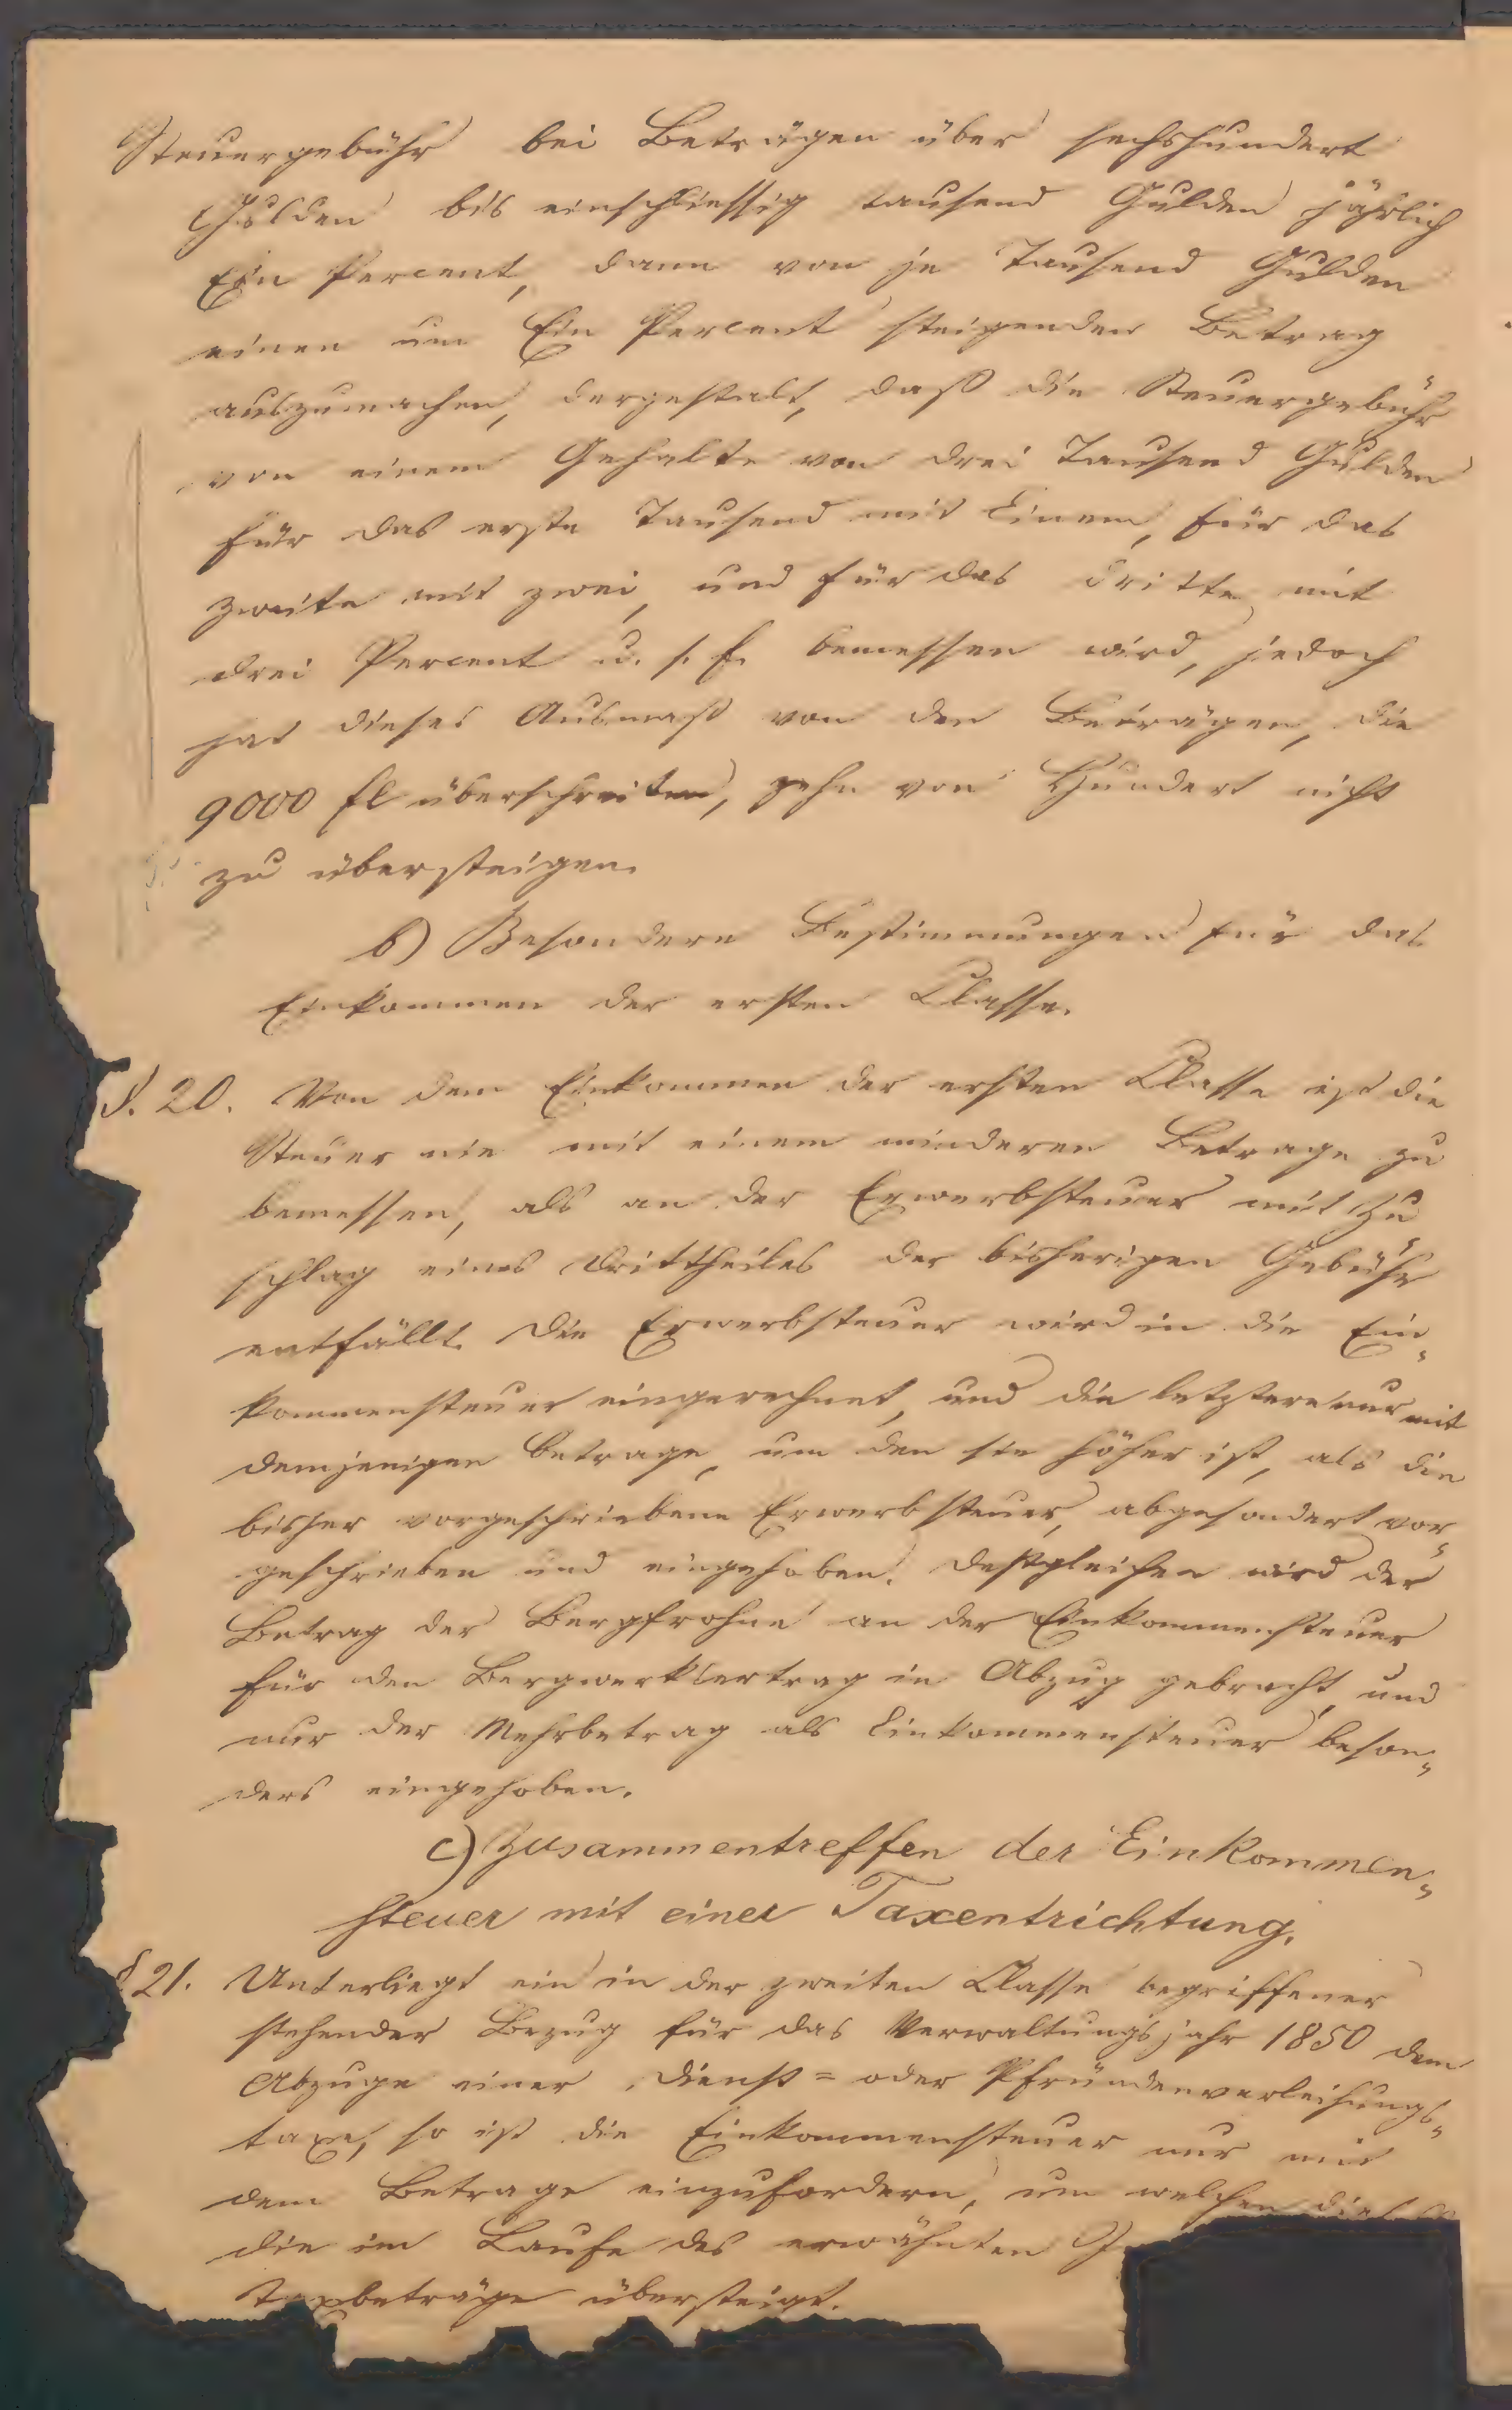 Steuergebühr bei Beträgen über sechshundert
Gulden bis einschliessig tausend Gulden jährlich
Ein Percent, dann von je Tausend Gulden
einen um Ein Percent steigenden Betrag
auszumachen, dergestalt, daß die Steuergebühr
von einem Gehalte von drei Tausend Gulden
für das erste Tausend mit Einem, für das
zweite mit zwei, und für das dritte mit
drei Percent u. s. f. bemessen wird, jedoch
hat dieses Ausmaß von den Beträgen, die
9000 fl überschreiten, zehn von Hundert nicht
zu übersteigen.
b) Besondere Bestimmungen für das
Einkommen der ersten Classe.
§. 20. Von dem Einkommen der ersten Classe ist die
Steuer nie mit einem minderen Betrage zu
bemessen, als an der Erwerbsteuer mit Zu
schlag eines Drittheiles der bisherigen Gebühr
entfällt. Die Erwerbsteuer wird in die Ein„
kommensteuer eingerechnet, und die letztere nur mit
demjenigen Betrage, um den sie höher ist, als die
bisher vorgeschriebene Erwerbsteuer, abgesondert vor„
geschrieben und eingehoben. Deßgleichen wird der
Betrag der Bergfrohne an der Einkommensteuer
für den Bergwerksertrag in Abzug gebracht, und
nur der Mehrbetrag als Einkommensteuer beson„
ders eingehoben.
c) Zusammentreffen der Einkommen„
steuer mit einer Taxentrichtung.
§ 21. Unterliegt ein in der zweiten Classe begriffener
stehender Bezug für das Verwaltungsjahr 1850 dem
Abzuge einer Dienst= oder Pfründenverleihungs„
taxe, so ist die Einkommensteuer nur mit
dem Betrage einzufordern, um welchen
die im Laufe des erwähnten
Taxbeträge übersteigt.